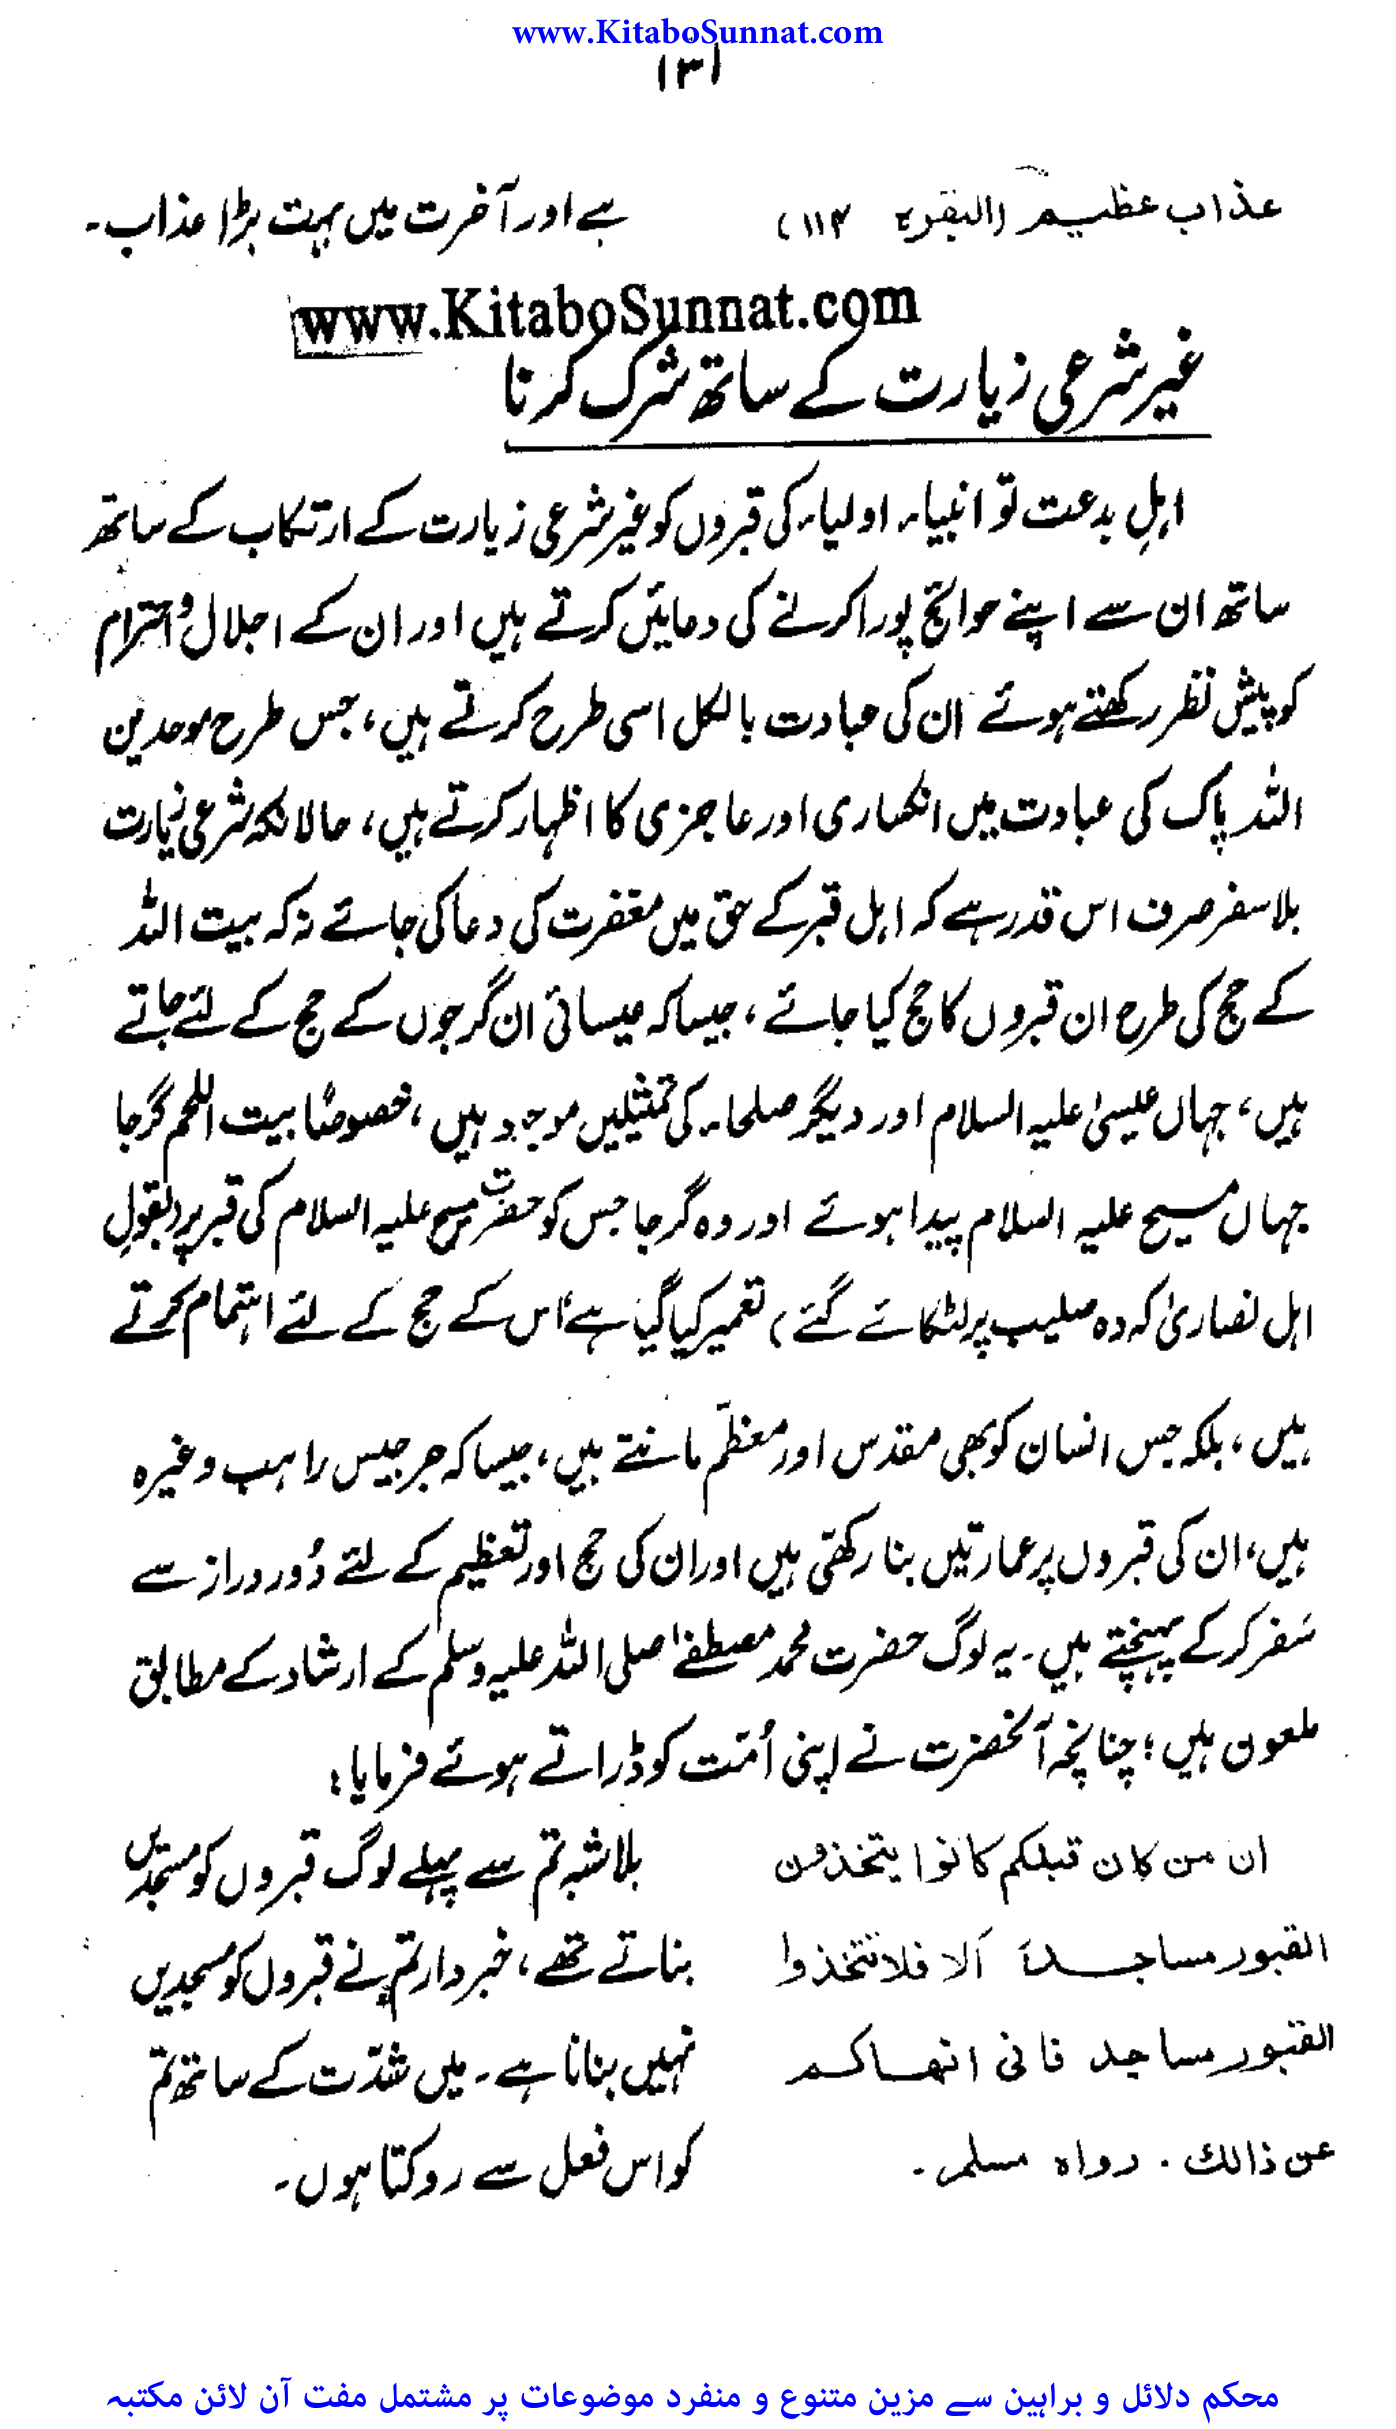 www.KitaboSunnat.com
۱۳۱
عذاب عظیم (البقرہ ۱۱۴)
ہے اور آخرت میں بہت بڑا عذاب۔
www.KitaboSunnat.com
غیر شرعی زیارت کے ساتھ شرک کرنا
اہلِ بدعت تو انبیاء۔ اولیاء۔ کی قبروں کو غیر شرعی زیارت کے ارتکاب کے ساتھ
ساتھ ان سے اپنے حوائج پورا کرنے کی دعائیں کرتے ہیں اور ان کے اجلال و احترام
کو پیش نظر رکھتے ہوئے ان کی عبادت بالکل اسی طرح کرتے ہیں، جس طرح موحدین
اللہ پاک کی عبادت میں انکساری اور عاجزی کا اظہار کرتے ہیں، حالانکہ شرعی زیارت
بلا سفر صرف اس قدر ہے کہ اہل قبر کے حق میں مغفرت کی دعا کی جائے نہ کہ بیت اللہ
کے حج کی طرح ان قبروں کا حج کیا جائے، جیسا کہ عیسائی ان گرجوں کے حج کے لئے جاتے
ہیں، جہاں عیسیٰ علیہ السلام اور دیگر صلحاء۔ کی تمثیلیں موجود ہیں، خصوصاً بیت اللحم گرجا
جہاں مسیح علیہ السلام پیدا ہوئے اور وہ گرجا جس کو حضرت مسیح علیہ السلام کی قبر پر (بقولِ
اہل نصاریٰ کہ وہ صلیب پر لٹکائے گئے) تعمیر کیا گیا ہے اس کے حج کے لئے اہتمام کرتے
ہیں، بلکہ جس انسان کو بھی مقدس اور معظّم مانتے ہیں، جیسا کہ جرجیس راہب وغیرہ
ہیں، ان کی قبروں پر عمارتیں بنا رکھتی ہیں اور ان کی حج اور تعظیم کے لئے دُور دراز سے
سَفر کر کے پہنچتے ہیں۔ یہ لوگ حضرت محمد مصطفےٰ صلی اللہ علیہ وسلم کے ارشاد کے مطابق
ملعون ہیں؛ چنانچہ آنحضرت نے اپنی اُمّت کو ڈراتے ہوئے فرمایا:
ان من کان قبلکم کانوا یتخذون
القبور مساجد اَلا فلا تتخذوا
القبور مساجد فانی انھاکم
عن ذالک۔ رواہ مسلم۔
بلا شبہ تم سے پہلے لوگ قبروں کو مسجدیں
بناتے تھے، خبردار تم نے قبروں کو مسجدیں
نہیں بنانا ہے۔ میں شدّت کے ساتھ تم
کو اس فعل سے روکتا ہوں۔
محکم دلائل و براہین سے مزین متنوع و منفرد موضوعات پر مشتمل مفت آن لائن مکتبہ